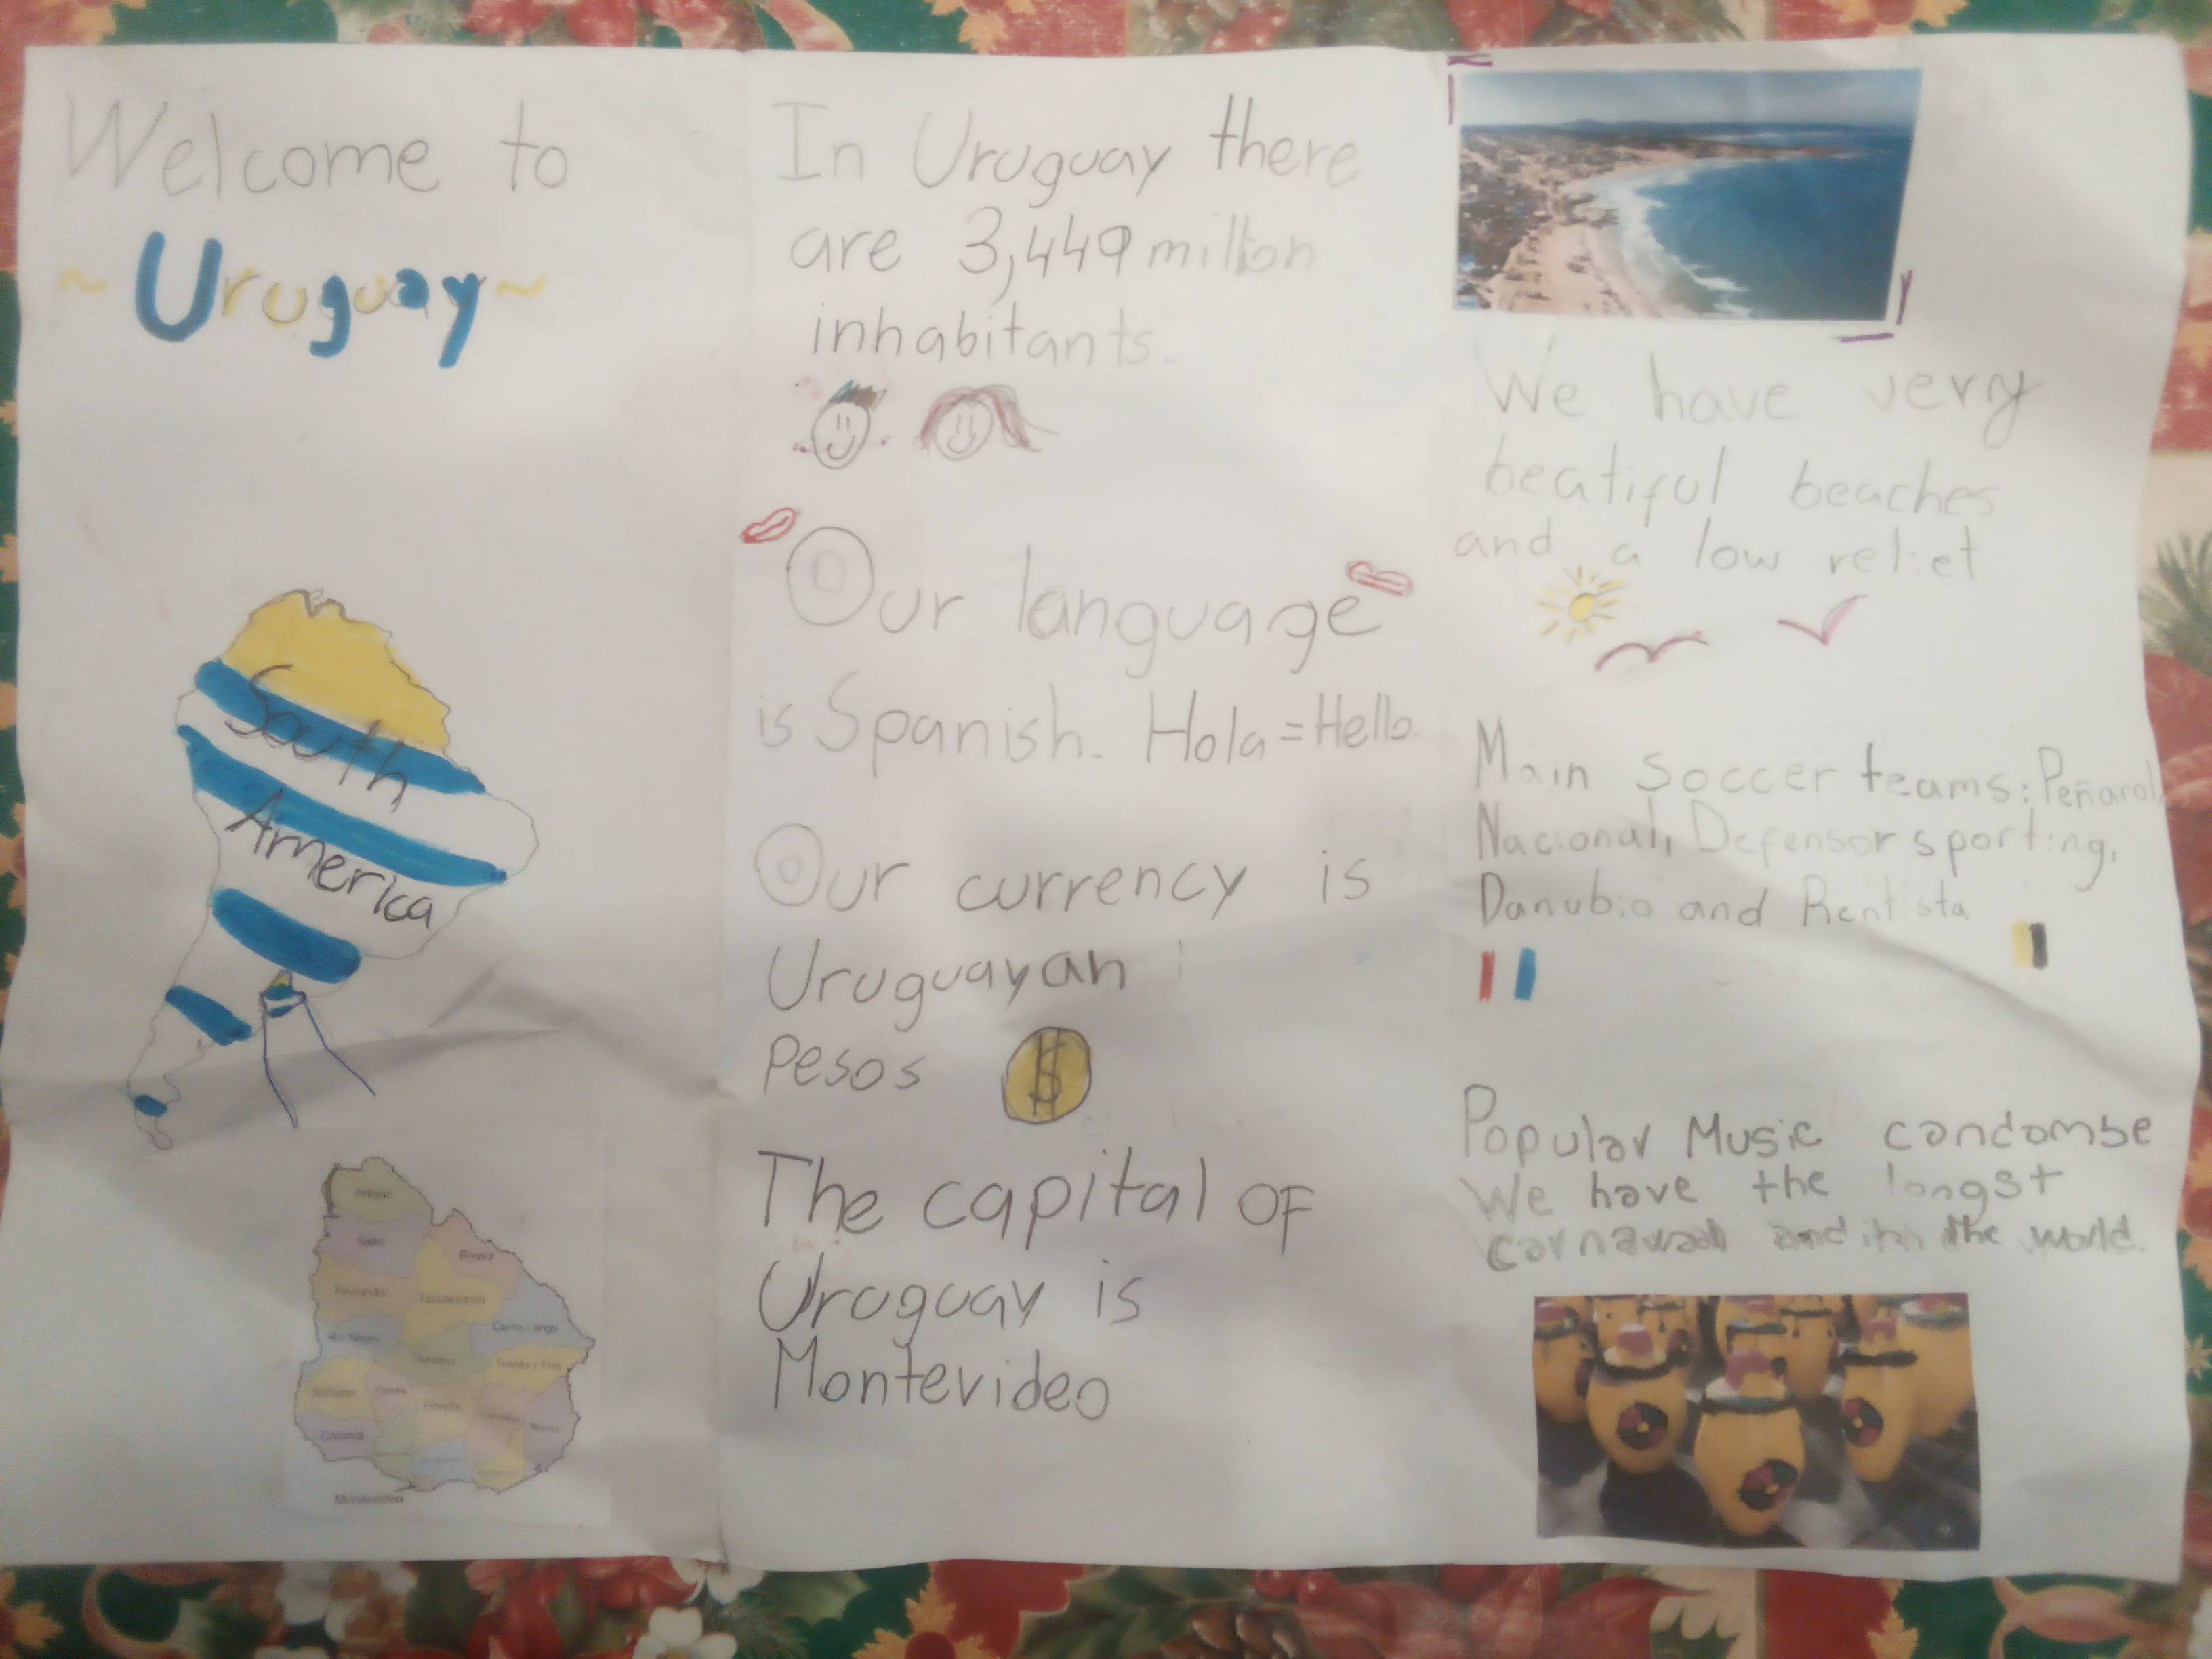 Welcome to
~Uruguay~
South
America
Artigas
Salto
Rivera
Paysandú
Tacuarembó
Cerro Largo
Río Negro
Durazno
Treinta y Tres
Soriano
Flores
Florida
Lavalleja
Rocha
Colonia
Montevideo
In Uruguay there
are 3,449 million
inhabitants.
Our language
is Spanish. Hola = Hello.
Our currency is
Uruguayan
pesos
$
The capital OF
Uruguay is
Montevideo
We have very
beatiful beaches
and a low relief
Main soccer teams: Peñarol,
Nacional, Defensor sporting,
Danubio and Rentista
Popular Music candombe
We have the longst
carnaval in the world.